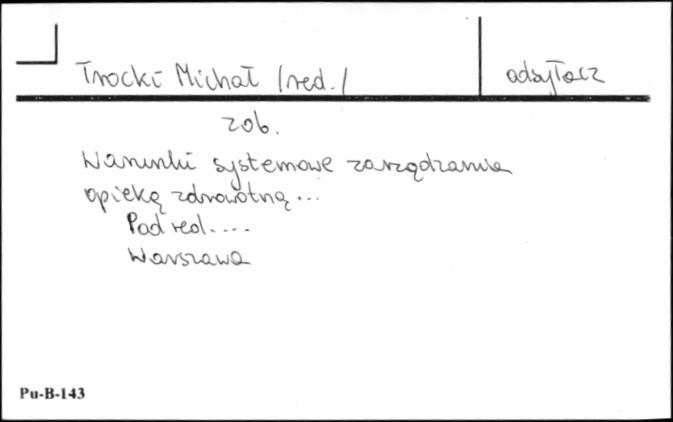 Trocki Michał /red./
odsyłacz
zob.
Warunki systemowe zarządzania
opieką zdrowotną...
Pod red....
Warszawa
Pu-B-143